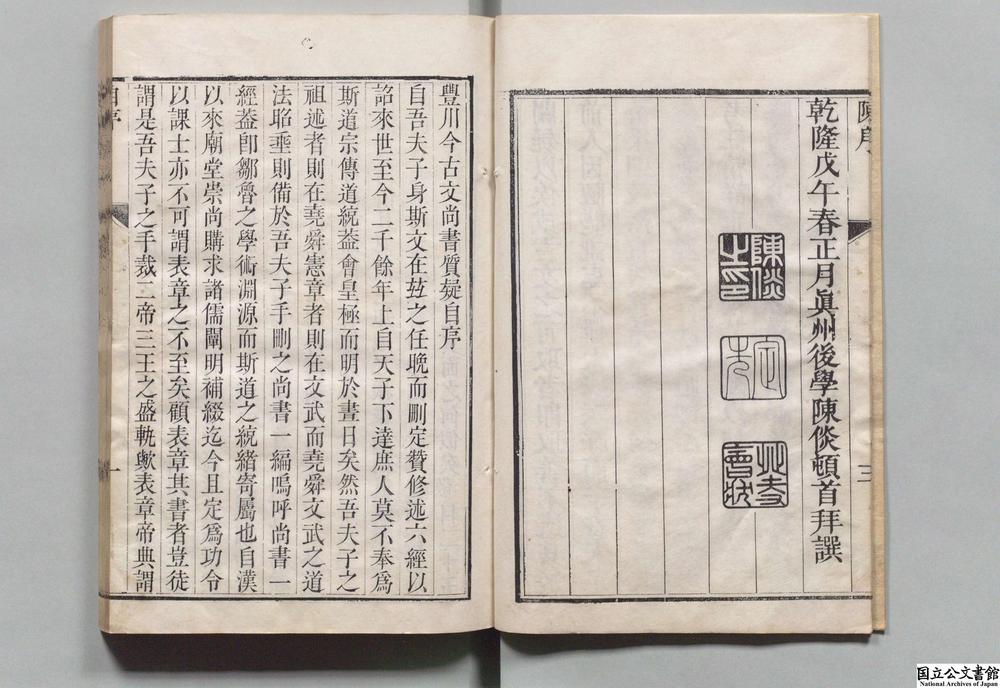 陳序
乾隆戊午春正月眞州後學陳倓頓首拜譔
三
陳倓
之印
豐川今古文尚書質疑自序
自吾夫子身斯文在玆之任晚而刪定贊修述六經以
詔來世至今二千餘年上自天子下達庶人莫不奉爲
斯道宗傳道統葢會皇極而明於晝日矣然吾夫子之
祖述者則在堯舜憲章者則在文武而堯舜文武之道
法昭垂則備於吾夫子手刪之尚書一編嗚呼尚書一
經葢卽鄒魯之學術淵源而斯道之統緖寄屬也自漢
以來廟堂崇尚購求諸儒闡明補綴迄今且定爲功令
以課士亦不可謂表章之不至矣顧表章其書者豈徒
謂是吾夫子之手裁二帝三王之盛軌歟表章帝典謂
自序
一
国立公文書館
National Archives of Japan